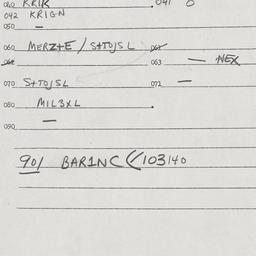 040 KRIK 041 0
042 KRIGN
050 —
060 MERZ+E / S+TOJSL 061
062 063 — NEX
070 S+TOJSL 072 —
080 MIL3XL .
—
090
901 BAR1NC ((103140